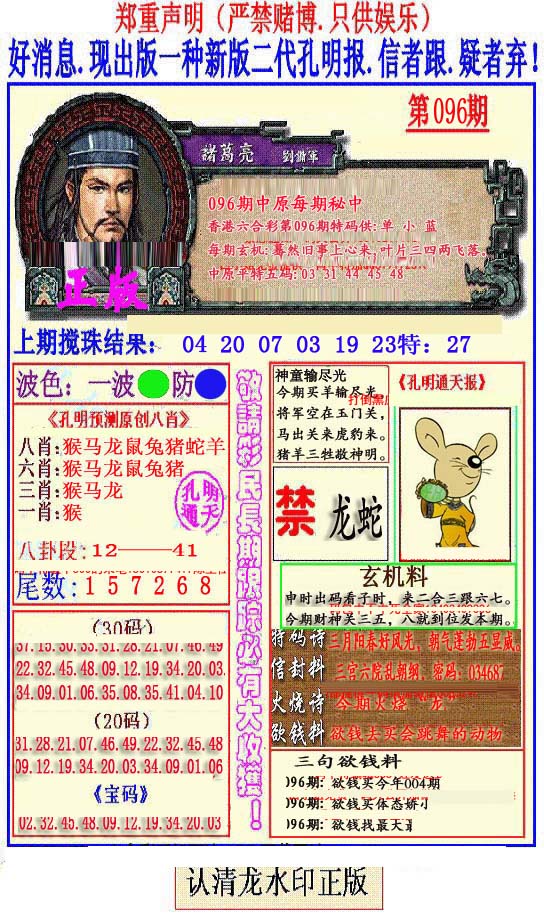 郑重声明（严禁赌博.只供娱乐）
好消息.现出版一种新版二代孔明报.信者跟.疑者弃!
第096期
諸葛亮 劉備軍
096期中原每期秘中
香港六合彩第096期特码供: 单 小 蓝
每期玄机: 蓦然旧事上心来, 叶片三四两飞落.
中原平特五码: 03 31 44 45 48
正版
上期搅珠结果: 04 20 07 03 19 23特: 27
波色: 一波 防
《孔明预测原创八肖》
八肖:猴马龙鼠兔猪蛇羊
六肖:猴马龙鼠兔猪
三肖:猴马龙
一肖:猴
孔明通天
八卦段:12——41
尾数:157268
(30码)
37.15.30.33.31.28.21.07.46.49
22.32.45.48.09.12.19.34.20.03
34.09.01.06.35.08.35.41.04.10
(20码)
31.28.21.07.46.49.22.32.45.48
09.12.19.34.20.03.34.09.01.06
《宝码》
02.32.45.48.09.12.19.34.20.03
敬請彩民長期跟踪必有大收獲!
神童输尽光
今期买羊输尽光
将军空在玉门关,
马出关来虎豹来。
猪羊三牲敬神明。
《孔明通天报》
禁 龙蛇
玄机料
申时出码看子时, 来二合三跟六七。
今期财神关三五, 六就到位发本期。
特码诗 三月阳春好风光, 朝气蓬勃五显威。
信封料 三宫六院乱朝纲, 密码: 034687
火烧诗 今期火烧"龙"
欲钱料 欲钱去买会跳舞的动物
三句欲钱料
096期: 欲钱买今年004期
096期: 欲钱买体态娇小
096期: 欲钱找最天
认清龙水印正版